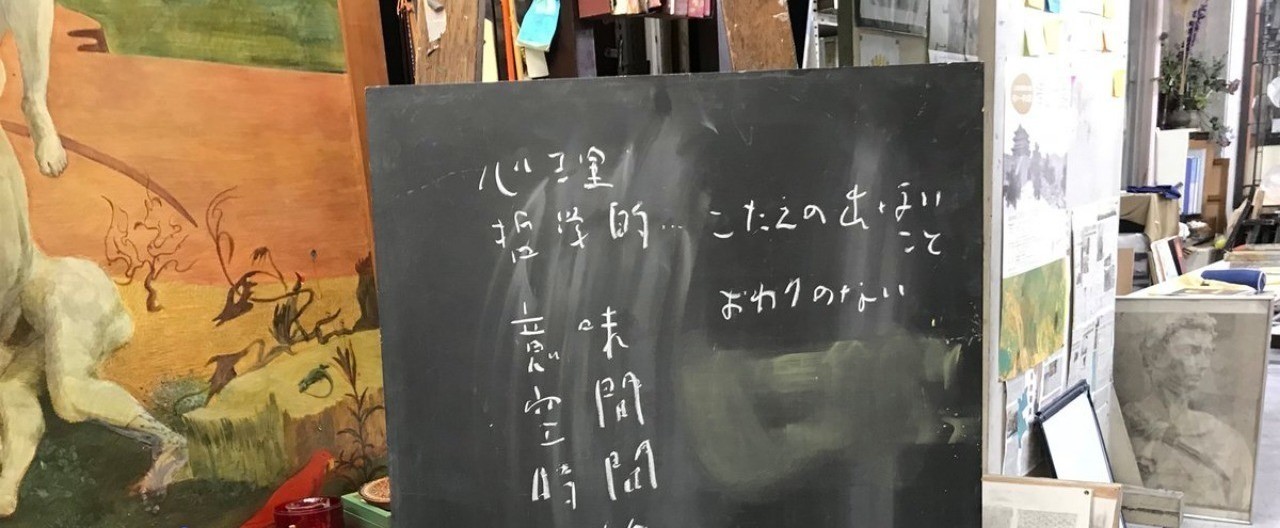 心理
哲学的…こたえの出ない
こと
おわりのない
意味
空間
時間